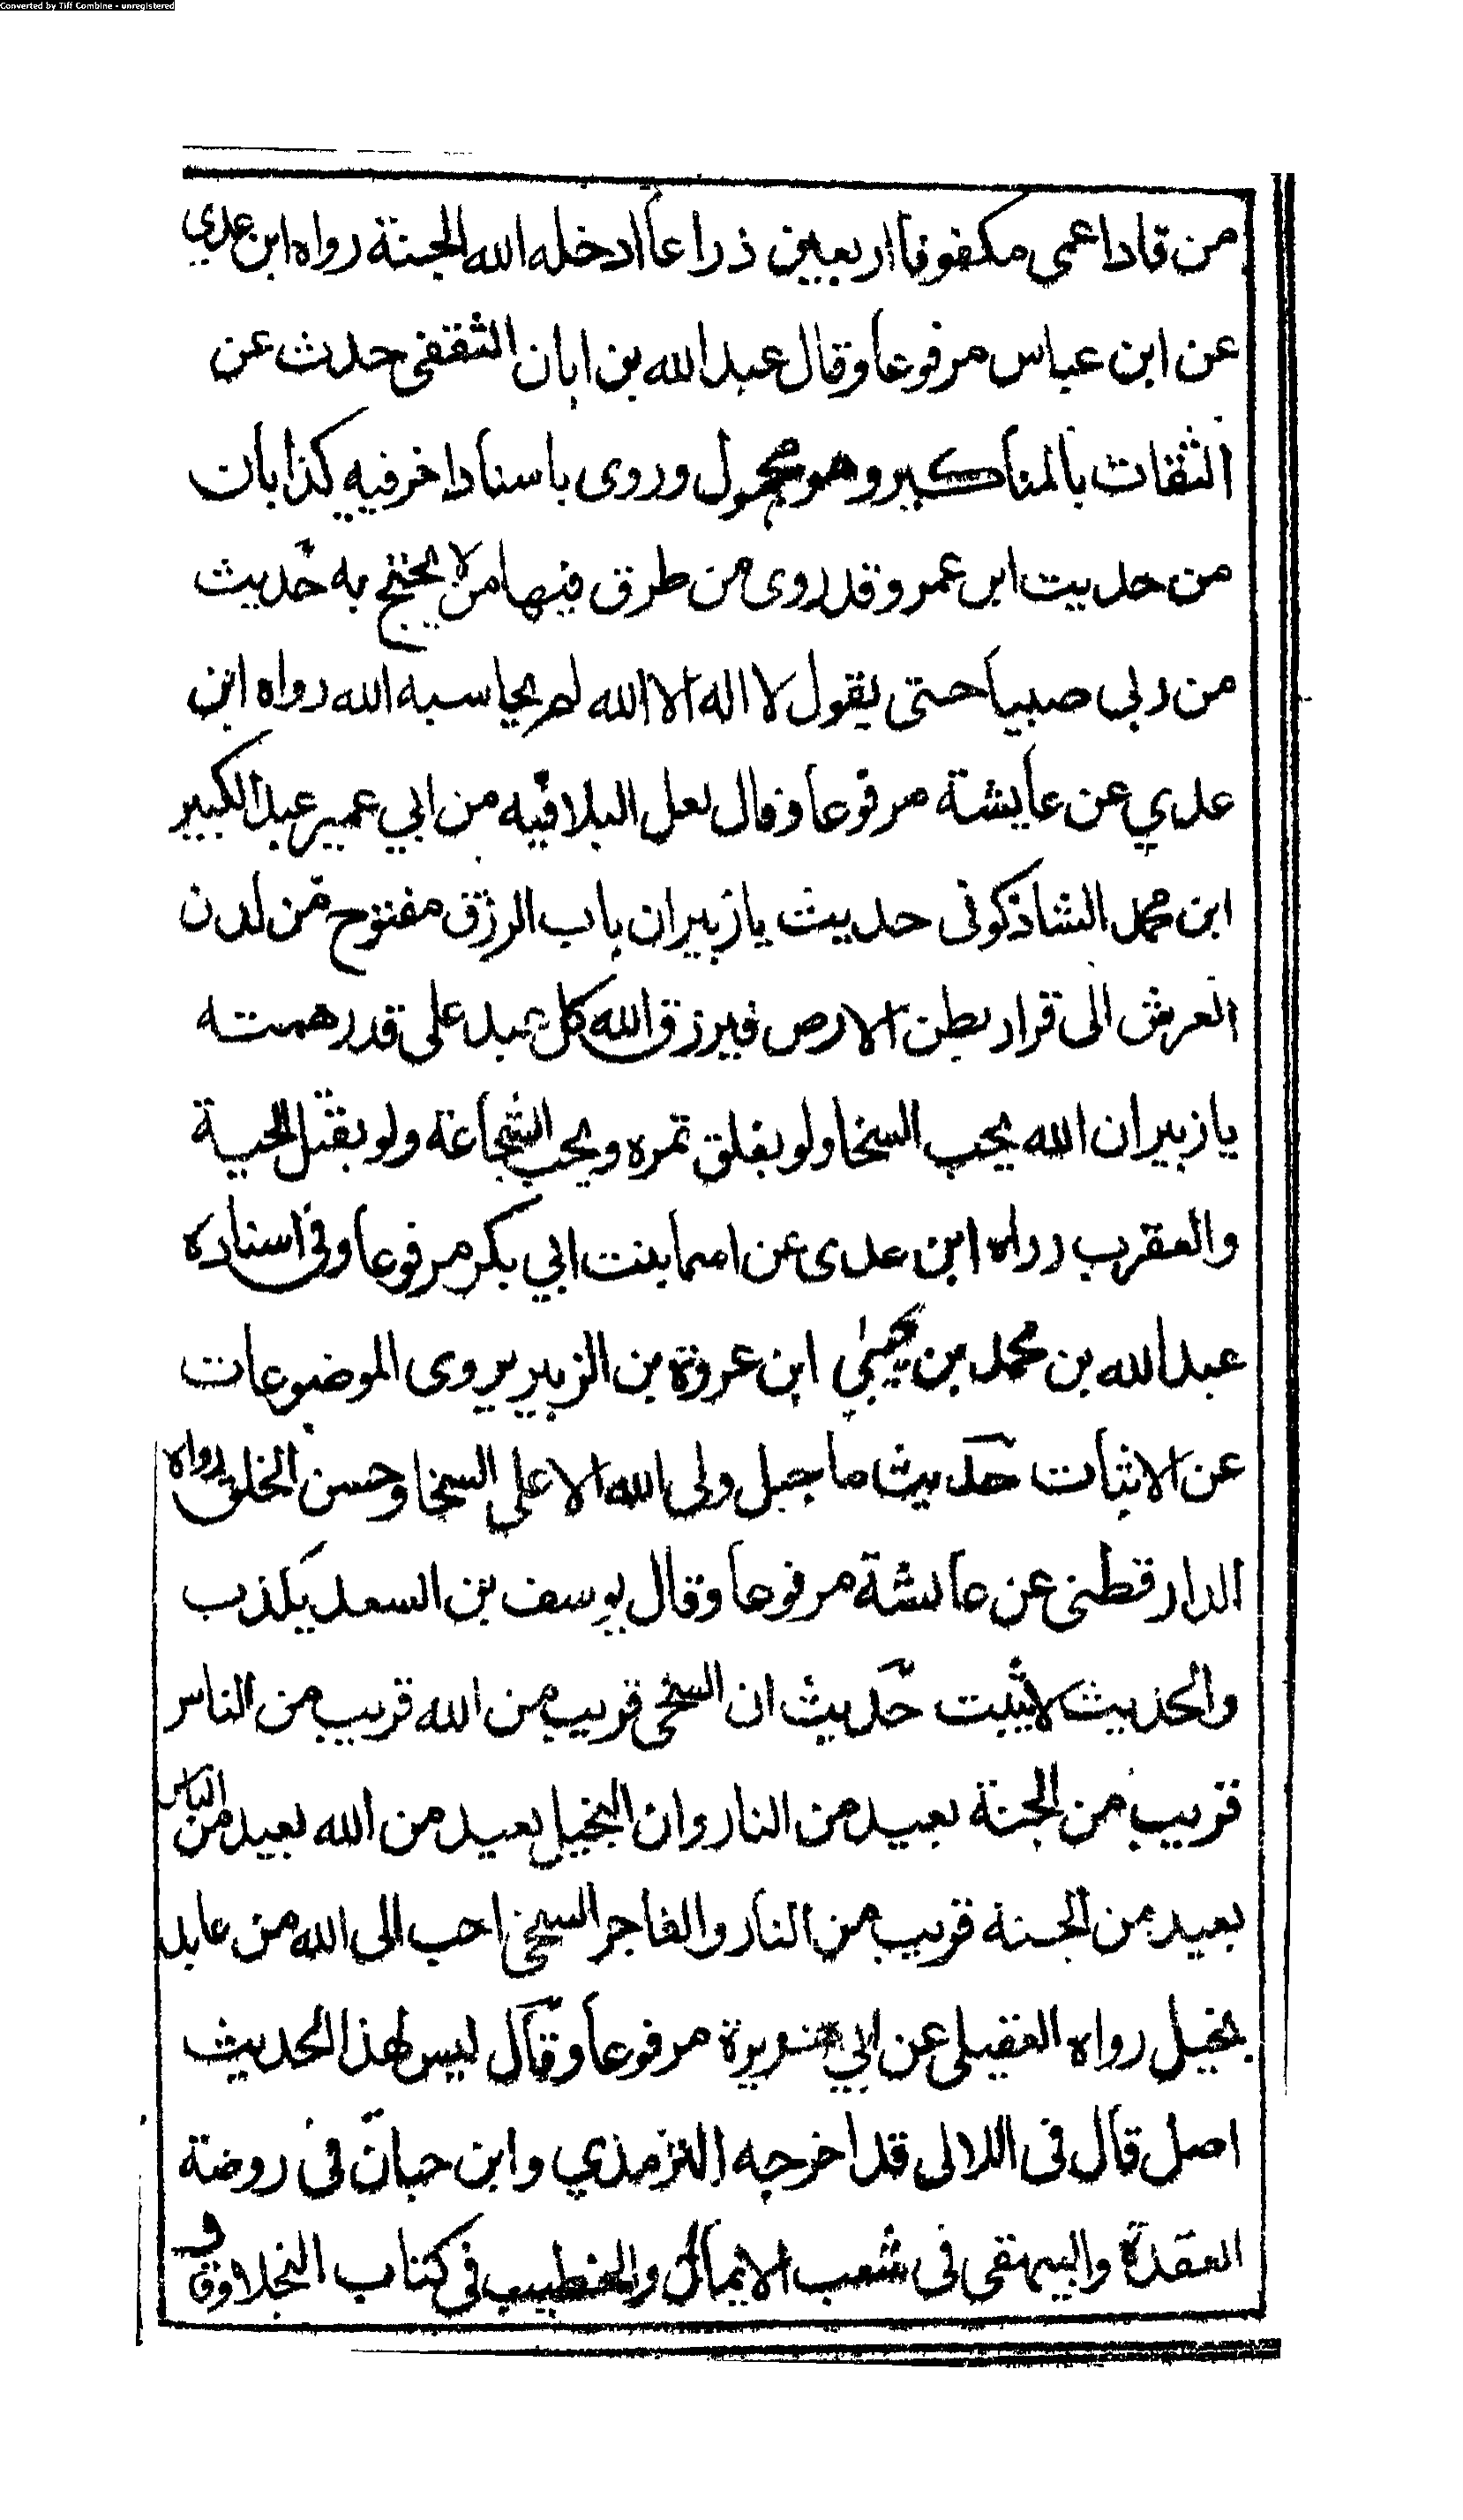 Converted by Tiff Combine - unregistered
من قاد اعمى مكفوفا اربعين ذراعا ادخله الله الجنة رواه ابن عدي
عن ابن عباس مرفوعا وقال عبد الله بن ابان الثقفى حدث عن
الثقات بالمناكير وهو مجهول وروى باسناد اخر فيه كذابان
من حديث ابن عمر وقد روى من طرق فيها من لا يحتج به حديث
من ربى صبيا حتى يقول لا اله الا الله لم يحاسبه الله رواه ابن
عدي عن عايشة مرفوعا وقال لعل البلا فيه من ابي عمير عبد الكبير
ابن محمد الشاذكونى حديث يا زبير ان باب الرزق مفتوح من لدن
العرش الى قرار بطن الارض فيرزق الله كل عبد على قدر همته
يا زبير ان الله يحب السخا ولو بفلق تمره ويحب الشجاعة ولو بقتل الحية
والعقرب رواه ابن عدى عن اسما بنت ابي بكر مرفوعا وفى اسناده
عبد الله بن محمد بن يحيى ابن عروة بن الزبير يروى الموضوعات
عن الاثبات حديث ما جبل ولى الله الا على السخا وحسن الخلق رواه
الدارقطنى عن عائشة مرفوعا وقال يوسف بن السعد يكذب
والحديث لا يثبت حديث ان السخى قريب من الله قريب من الناس
قريب من الجنة بعيد من النار وان البخيل بعيد من الله بعيد من الناس
بعيد من الجنة قريب من النار والفاجر السخى احب الى الله من عابد
بخيل رواه العقيلى عن ابي هريرة مرفوعا وقال ليس لهذا الحديث
اصل قال فى اللالى قد اخرجه الترمذي وابن حبان فى روضة
العقدة والبيهقى فى شعب الايمان والخطيب فى كتاب البخلا وق